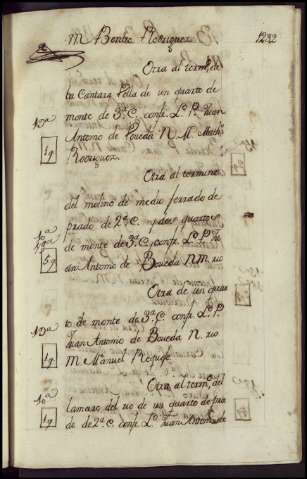 M. Benta Rodriguez 1222
Otra al term.º de
la Cantara Pella de un quarto de
monte de 3ª C. confi. L. P. Juan
Antonio de Boueda N. M.
Rodriguez.
13ª
1q
Otra al termino
del molino de medio ferrado de
prado de 2ª C. y dos quartos
de monte de 3ª C. confi. L. P. Ju
an Antonio de Boueda N. M. rio
10ª
13ª
5q
Otra de un quar
to de monte de 3ª C. confi. L. P.
Juan Antonio de Boueda N. rio
M. Manuel
13ª
1q
Otra al term.º del
lamazo del rio de un quarto de pra
do de 2ª C. confi. L. Juan Antonio de
10ª
1q